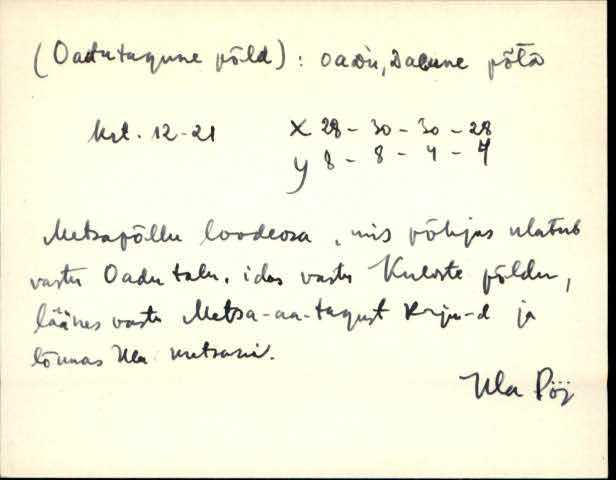 (Oadutagune põld) : oaᴅu, ᴅaɢune põlᴅ
krt. 12-21 X 28 - 30 - 30 - 28
y 8 - 8 - 4 - 4
Metsapõllu loodeosa, mis põhjas ulatub
vastu Oadu talu. idas vastu Kuloste põldu,
läänes vastu Metsa-aa-tagust karju-d ja
lõunas Ula metsani.
Ula Pöj